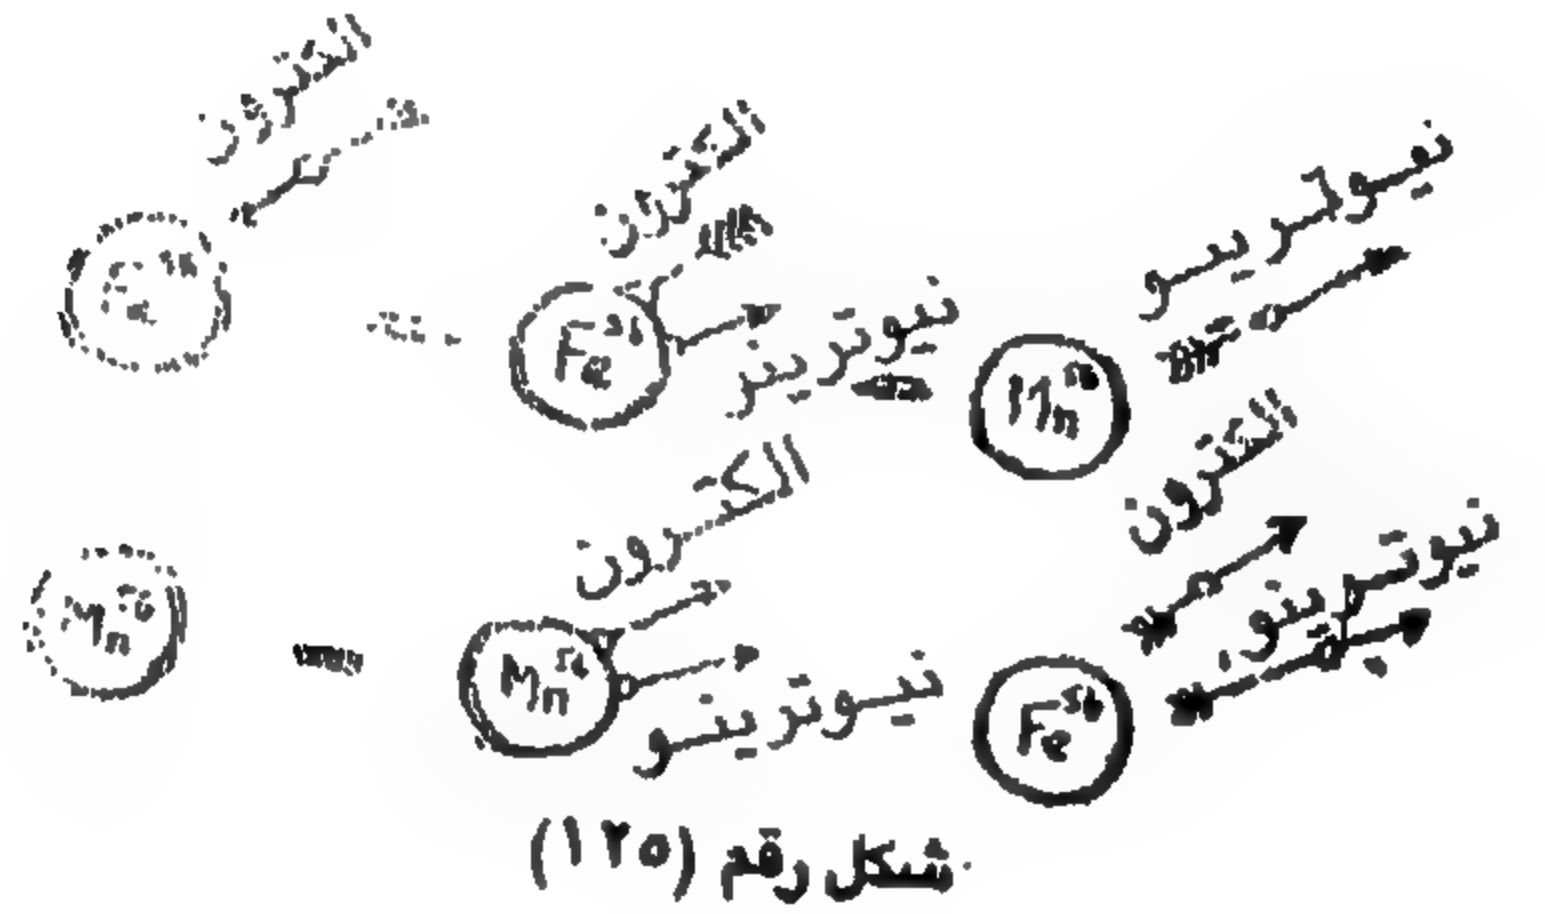 الكترون
Fe
الكترون
Fe⁵⁶
نيوترينو
Mn⁵⁶
نيوترينو
Mn⁵⁶
الكترون
Mn⁵⁶
نيوترينو
الكترون
نيوترينو
Fe⁵⁶
شكل رقم (١٢٥)